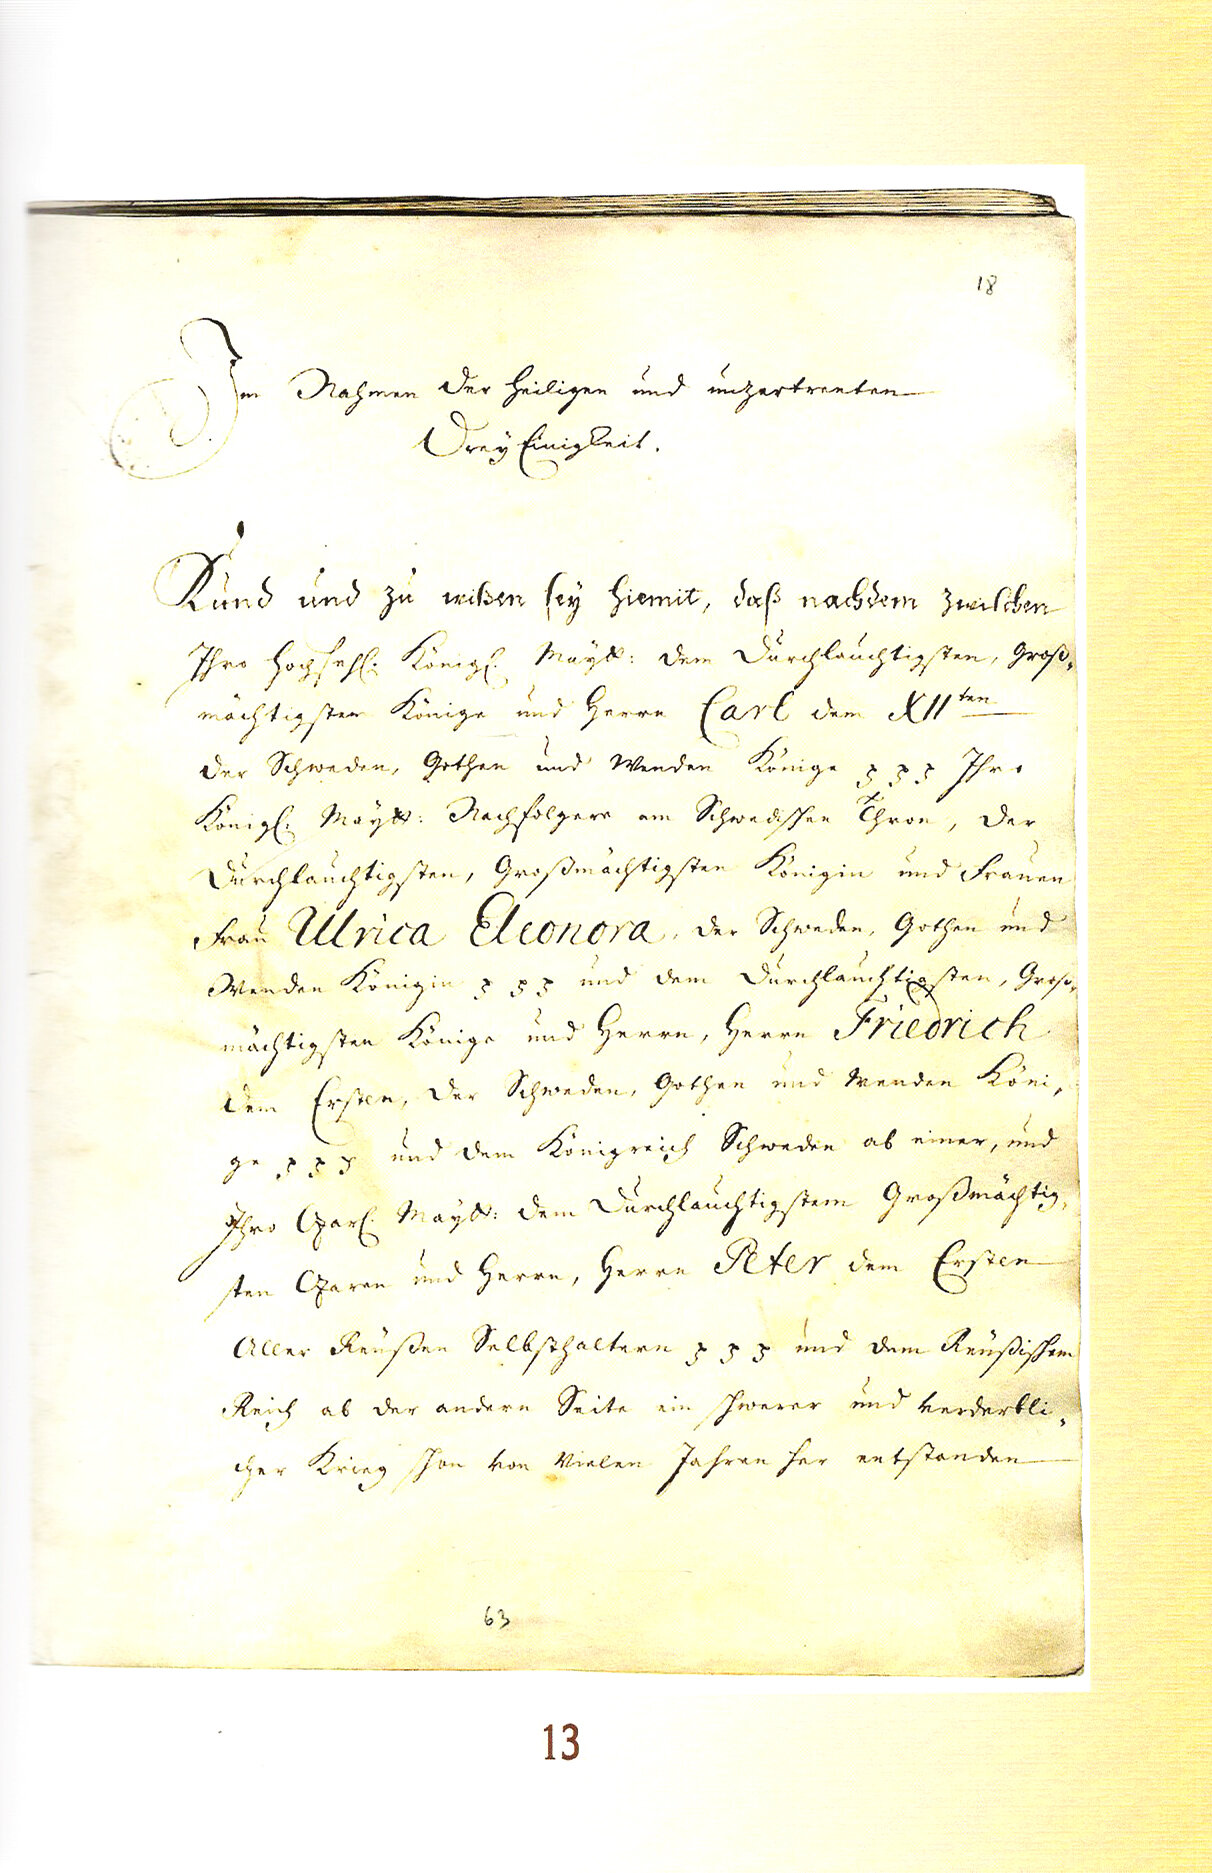 18
Im Nahmen der Heiligen und unzertrenten
DreyEinigkeit.
Kund und zu wißen sey hiemit, daß nachdem zwischen
Ihro Hochseel. Königl. Maytt: dem Durchlauchtigsten, Groß-
mächtigsten Könige und Herrn Carl dem XIIten
der Schweden, Gothen und Wenden Könige ꝛ ꝛ ꝛ Ihro
Königl. Maytt: Nachfolgere am Schwedschen Thron, der
Durchlauchtigsten, Großmächtigsten Königin und Frauen
Frau Ulrica Eleonora, der Schweden, Gothen und
Wenden Königin ꝛ ꝛ ꝛ und dem Durchlauchtigsten, Groß-
mächtigsten Könige und Herrn, Herrn Friedrich
dem Ersten, der Schweden, Gothen und Wenden Köni-
ge ꝛ ꝛ ꝛ und dem Königreich Schweden ab einer, und
Ihro Czarl. Maytt: dem Durchlauchtigstem Großmächtig-
sten Czaren und Herrn, Herrn Peter dem Ersten
Aller Reußen Selbsthaltern ꝛ ꝛ ꝛ und dem Reußischem
Reich ab der andern Seite ein schwerer und verderbli-
cher Krieg schon von vielen Jahren her entstanden
63
13